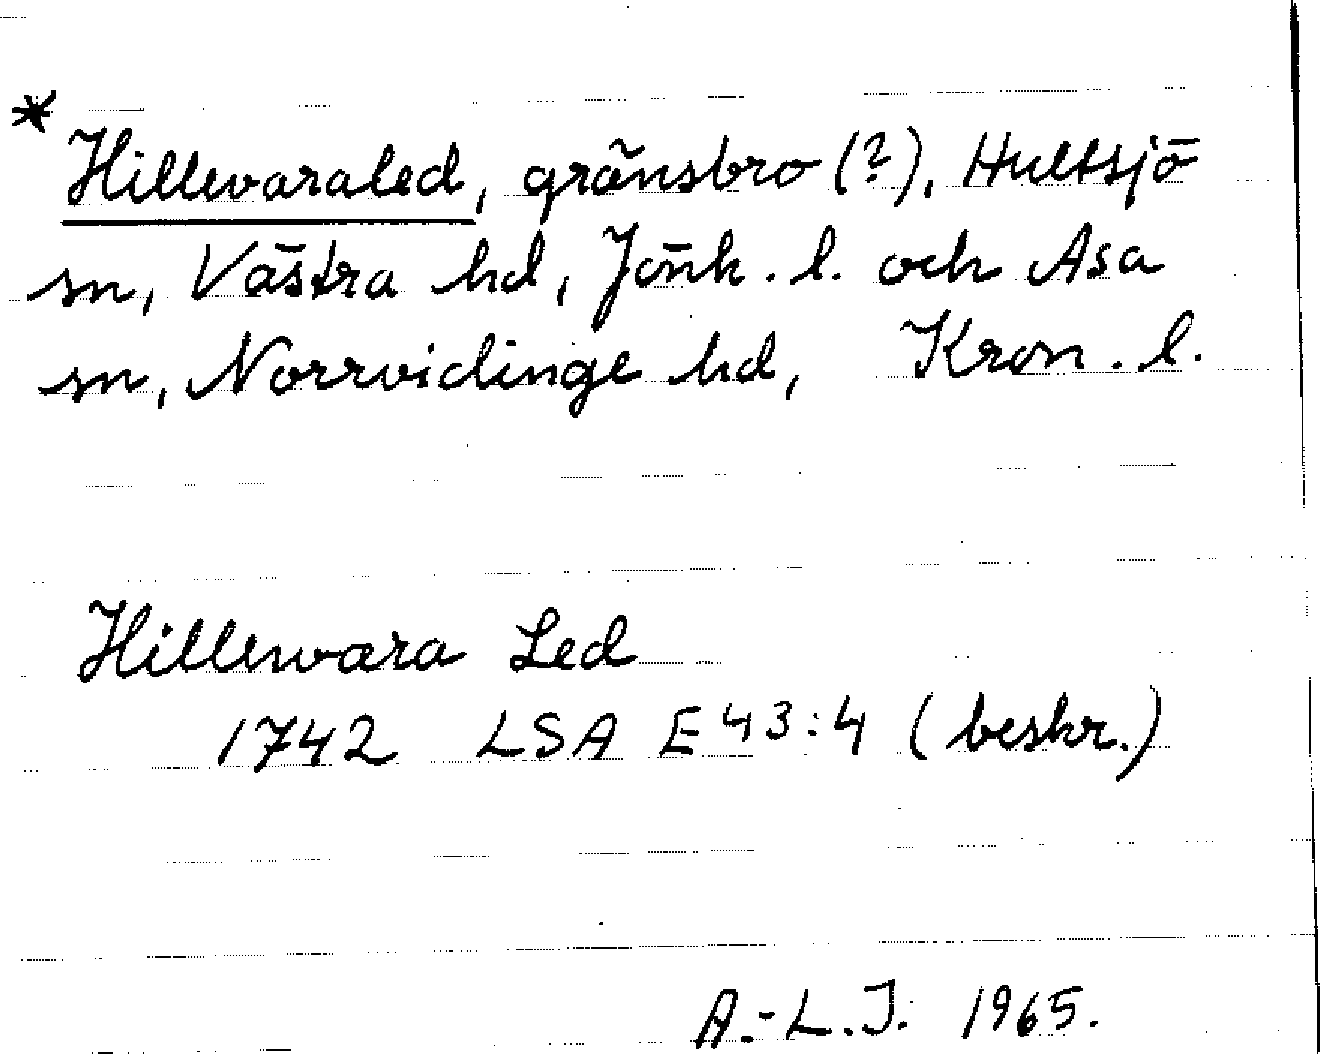 * Hillevaraled, gränsbro (?), Hultsjö
sn, Västra hd, Jönk. l. och Asa
sn, Norrvidinge hd, Kron. l.
Hillewara Led
1742 LSA E 43:4 (beskr.)
A.-L.J. 1965.